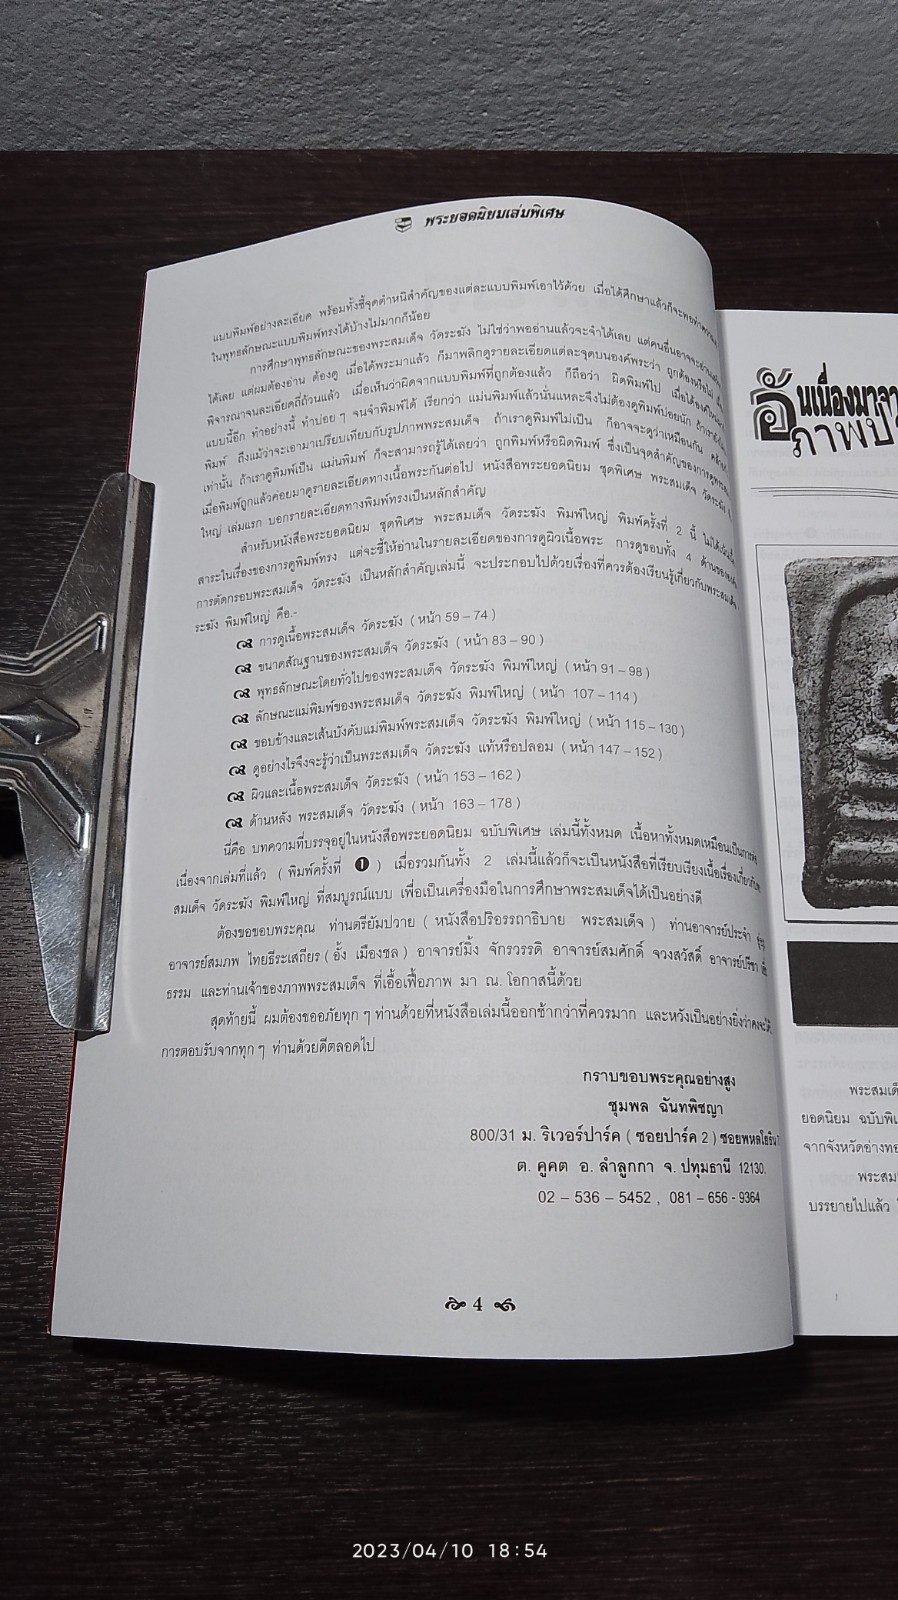 พระยอดนิยมเล่มพิเศษ
แบบพิมพ์อย่างละเอียด พร้อมทั้งชี้จุดตำหนิสำคัญของแต่ละแบบพิมพ์เอาไว้ด้วย เมื่อได้ศึกษาแล้วก็จะพอทำความ
ในพุทธลักษณะแบบพิมพ์ทรงได้บ้างไม่มากก็น้อย
การศึกษาพุทธลักษณะของพระสมเด็จ วัดระฆัง ไม่ใช่ว่าพออ่านแล้วจะจำได้เลย แต่คนอื่นอาจจะอ่านแล้ว
ได้เลย แต่ผมต้องอ่าน ต้องดู เมื่อได้พระมาแล้ว ก็มาพลิกดูรายละเอียดแต่ละจุดบนองค์พระว่า ถูกต้องหรือไม่
พิจารณาจนละเอียดถี่ถ้วนแล้ว เมื่อเห็นว่าผิดจากแบบพิมพ์ที่ถูกต้องแล้ว ก็ถือว่า ผิดพิมพ์ไป เมื่อได้องค์ใหม่
แบบนี้อีก ทำอย่างนี้ ทำบ่อยๆ จนจำพิมพ์ได้ เรียกว่า แม่นพิมพ์แล้วนั่นแหละจึงไม่ต้องดูพิมพ์บ่อยนัก ถ้าเรา
พิมพ์ ถึงแม้ว่าจะเอามาเปรียบเทียบกับรูปภาพพระสมเด็จ ถ้าเราดูพิมพ์ไม่เป็น ก็อาจจะดูว่าเหมือนกัน
เท่านั้น ถ้าเราดูพิมพ์เป็น แม่นพิมพ์ ก็จะสามารถรู้ได้เลยว่า ถูกพิมพ์หรือผิดพิมพ์ ซึ่งเป็นจุดสำคัญของการดูพระสมเด็จ
เมื่อพิมพ์ถูกแล้วค่อยมาดูรายละเอียดทางเนื้อพระกันต่อไป หนังสือพระยอดนิยม ชุดพิเศษ พระสมเด็จ วัดระฆัง
ใหญ่ เล่มแรก บอกรายละเอียดทางพิมพ์ทรงเป็นหลักสำคัญ
สำหรับหนังสือพระยอดนิยม ชุดพิเศษ พระสมเด็จ วัดระฆัง พิมพ์ใหญ่ พิมพ์ครั้งที่ 2 นี้ ไม่ได้เน้น
สาระในเรื่องของการดูพิมพ์ทรง แต่จะชี้ให้อ่านในรายละเอียดของการดูผิวเนื้อพระ การดูขอบทั้ง 4 ด้านของ
การตัดกรอบพระสมเด็จ วัดระฆัง เป็นหลักสำคัญเล่มนี้ จะประกอบไปด้วยเรื่องที่ควรต้องเรียนรู้เกี่ยวกับพระสมเด็จ
ระฆัง พิมพ์ใหญ่ คือ.-
การดูเนื้อพระสมเด็จ วัดระฆัง ( หน้า 59 – 74 )
ขนาดสัณฐานของพระสมเด็จ วัดระฆัง ( หน้า 83 – 90 )
พุทธลักษณะโดยทั่วไปของพระสมเด็จ วัดระฆัง พิมพ์ใหญ่ ( หน้า 91 – 98 )
ลักษณะแม่พิมพ์ของพระสมเด็จ วัดระฆัง พิมพ์ใหญ่ ( หน้า 107 – 114 )
ขอบข้างและเส้นบังคับแม่พิมพ์พระสมเด็จ วัดระฆัง พิมพ์ใหญ่ ( หน้า 115 – 130 )
ดูอย่างไรจึงจะรู้ว่าเป็นพระสมเด็จ วัดระฆัง แท้หรือปลอม ( หน้า 147 – 152 )
ผิวและเนื้อพระสมเด็จ วัดระฆัง ( หน้า 153 – 162 )
ด้านหลัง พระสมเด็จ วัดระฆัง ( หน้า 163 – 178 )
นี่คือ บทความที่บรรจุอยู่ในหนังสือพระยอดนิยม ฉบับพิเศษ เล่มนี้ทั้งหมด เนื้อหาทั้งหมดเหมือนเป็นการ
เนื่องจากเล่มที่แล้ว ( พิมพ์ครั้งที่ ❶ ) เมื่อรวมกันทั้ง 2 เล่มนี้แล้วก็จะเป็นหนังสือที่เรียบเรียงเนื้อเรื่องเกี่ยวกับ
สมเด็จ วัดระฆัง พิมพ์ใหญ่ ที่สมบูรณ์แบบ เพื่อเป็นเครื่องมือในการศึกษาพระสมเด็จได้เป็นอย่างดี
ต้องขอขอบพระคุณ ท่านตรียัมปวาย ( หนังสือปริอรรถาธิบาย พระสมเด็จ ) ท่านอาจารย์ประจำ
อาจารย์สมภพ ไทยธีระเสถียร ( อั้ง เมืองชล ) อาจารย์มิ้ง จักรวรรดิ อาจารย์สมศักดิ์ จวงสวัสดิ์ อาจารย์ปรีชา
ธรรม และท่านเจ้าของภาพพระสมเด็จ ที่เอื้อเฟื้อภาพ มา ณ. โอกาสนี้ด้วย
สุดท้ายนี้ ผมต้องขออภัยทุก ๆ ท่านด้วยที่หนังสือเล่มนี้ออกช้ากว่าที่ควรมาก และหวังเป็นอย่างยิ่งว่าคงจะได้
การตอบรับจากทุก ๆ ท่านด้วยดีตลอดไป
กราบขอบพระคุณอย่างสูง
ชุมพล ฉันทพิชญา
800/31 ม. ริเวอร์ปาร์ค ( ซอยปาร์ค 2 ) ซอยพหลโยธิน
ต. คูคต อ. ลำลูกกา จ. ปทุมธานี 12130.
02 – 536 – 5452 , 081 – 656 - 9364
4
อันเนื่องมาจา
ภาพป
พระสมเด็
ยอดนิยม ฉบับพิเ
จากจังหวัดอ่างทอ
พระสม
บรรยายไปแล้ว
2023/04/10 18:54